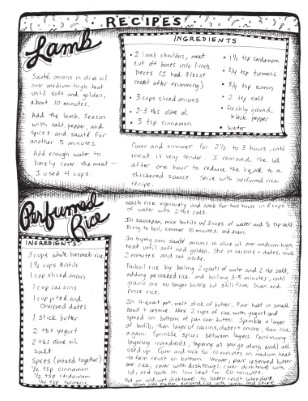 RECIPES
Lamb
Sauté onions in olive oil
over medium-high heat
until soft and golden,
about 10 minutes.
Add the lamb. Season
with salt, pepper, and
spices and sauté for
another 5 minutes.
Add enough water to
barely cover the meat —
I used 4 cups.
INGREDIENTS
• 2 lamb shoulders, meat
cut off bones into 1 inch
pieces (I had 2 lbs of
meat after trimming)
• 3 cups sliced onions
• 2-3 tbs olive oil
• 3 tsp cinnamon
• 1 1/2 tsp cardamom
• 3/4 tsp turmeric
• 3/4 tsp cumin
• 2 tsp salt
• freshly ground
black pepper
• water
Cover and simmer for 2 1/2 to 3 hours, until
meat is very tender. I removed the lid
after one hour to reduce the liquid to a
thickened sauce. Serve with perfumed rice
recipe.
Perfumed
Rice
INGREDIENTS:
3 cups white basmati rice
1 1/2 cups
1 cup sliced onion
1 cup raisins
1 cup pitted and
chopped dates
1 stick butter
2 tbs yogurt
2 tbs olive oil
salt
Spices (mixed together)
1/2 tsp cinnamon
1/2 tsp cardamom
1/4 tsp turmeric
Wash rice vigorously and soak for two hours in 8 cups
of water with 2 tbs salt.
In saucepan, mix lentils w/ 3 cups of water and 1/2 tsp salt.
Bring to boil, simmer 10 minutes, and drain.
In frying pan, sauté onions in olive oil over medium-high
heat until soft and golden. Stir in raisins + dates, sauté
2 minutes and set aside.
Parboil rice by boiling 2 quarts of water and 2 tbs salt,
adding presoaked rice and boiling 3-5 minutes, until
grains are no longer brittle but still firm. Drain and
rinse rice.
In 4-quart pot, melt stick of butter. Pour half in small
bowl + reserve. Mix 2 cups of rice with yogurt and
spread on bottom of pan over butter. Sprinkle a layer
of lentils, then layer of raisins, dates + onion, then rice
again. Sprinkle spices between layers. Continue
layering ingredients, tapering as you go along until all
used up. Cover and cook for 10 minutes on medium heat
to form crust on bottom. Uncover, pour reserved butter
over rice, cover with dishcloth, cover dishcloth with
lid, and cook on low heat for 50 minutes.